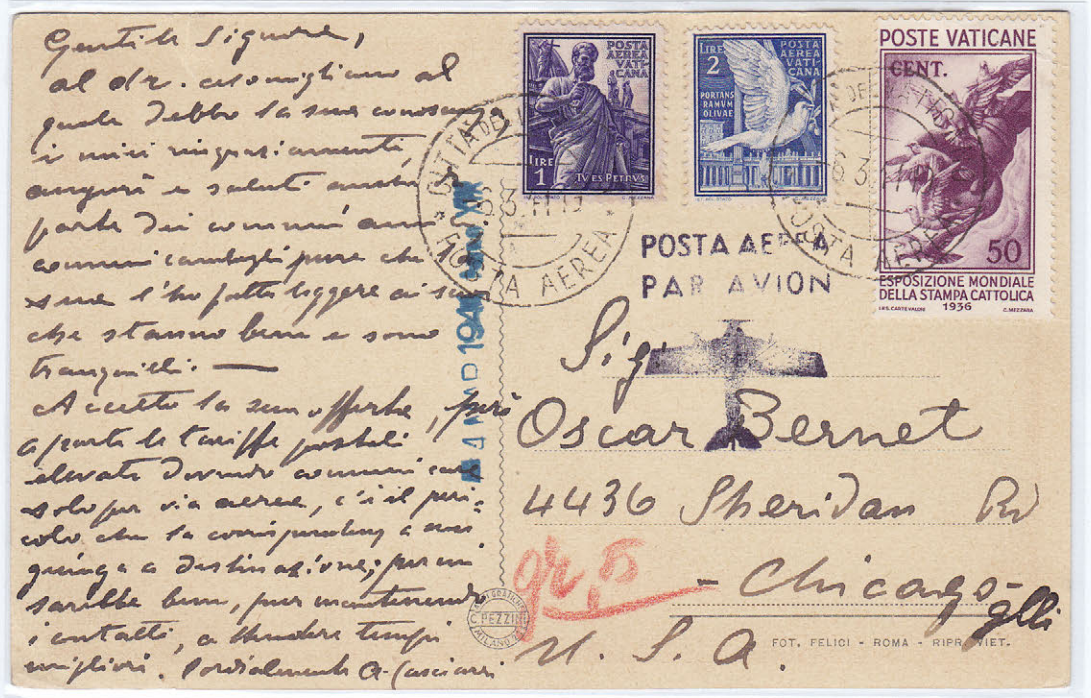 Gentile Signore,
al dr. al
quale debbo la sua
i miei ringraziamenti,
auguri e saluti anche
parte dei comuni
che
sue l'ho fatto leggere ai
che stanno bene e sono
tranquilli. —
Accetto la sua offerta, però
a parte le tariffe postali
elevate dovendo comunicare
solo per via aerea, c'è il peri=
colo che la non
giunga a destinazione; per cui
sarebbe bene, pur mantenendo
i contatti, attendere tempi
migliori. Cordialmente A.
POSTA
AEREA
VATI-
CANA
LIRE
1
TV ES PETRVS
LIRE
2
POSTA
AEREA
VATI-
CANA
PORTANS
RAMVM
OLIVAE
POSTE VATICANE
CENT.
50
ESPOSIZIONE MONDIALE
DELLA STAMPA CATTOLICA
1936
C. MEZZANA
CITTA DEL
POSTA AEREA
POSTA AEREA
POSTA AEREA
PAR AVION
Sig.
Oscar Bernet
4436 Sheridan Rd
- Chicago -
U. S. A.
gr. 5
PEZZINI
MILANO
FOT. FELICI - ROMA - RIPR. VIET.